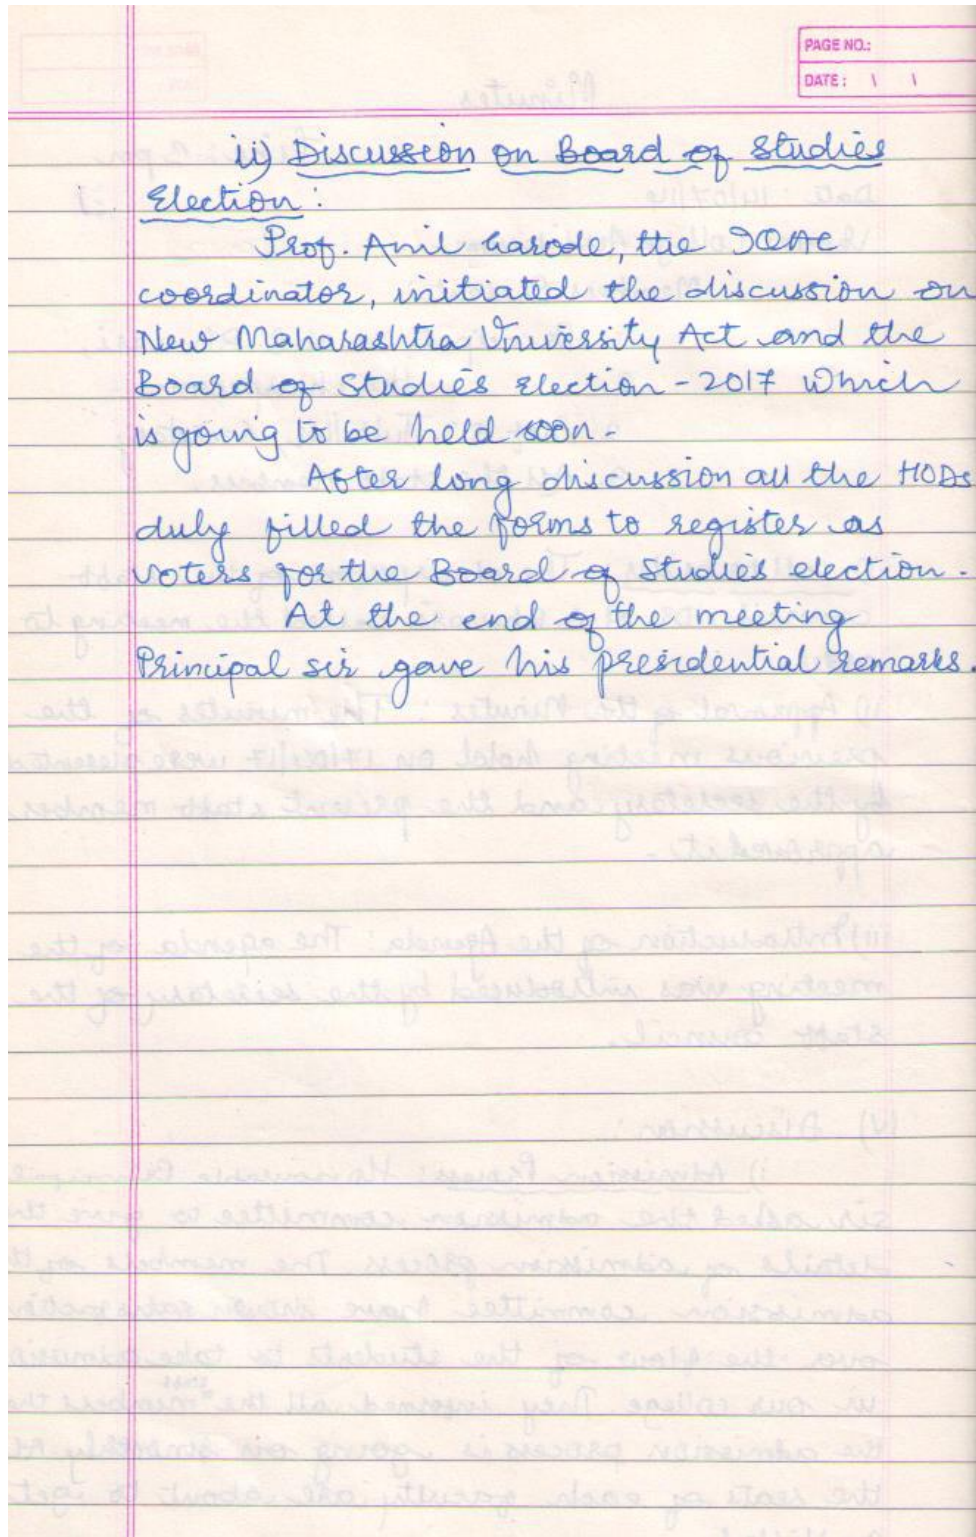 PAGE NO.:
DATE: \ \
ii) Discussion on Board of Studies
Election:
Prof. Anil Garode, the IQAC
coordinator, initiated the discussion on
New Maharashtra University Act and the
Board of Studies Election - 2017 which
is going to be held soon.
After long discussion all the HODs
duly filled the forms to register as
voters for the Board of Studies election.
At the end of the meeting
Principal sir gave his presidential remarks.